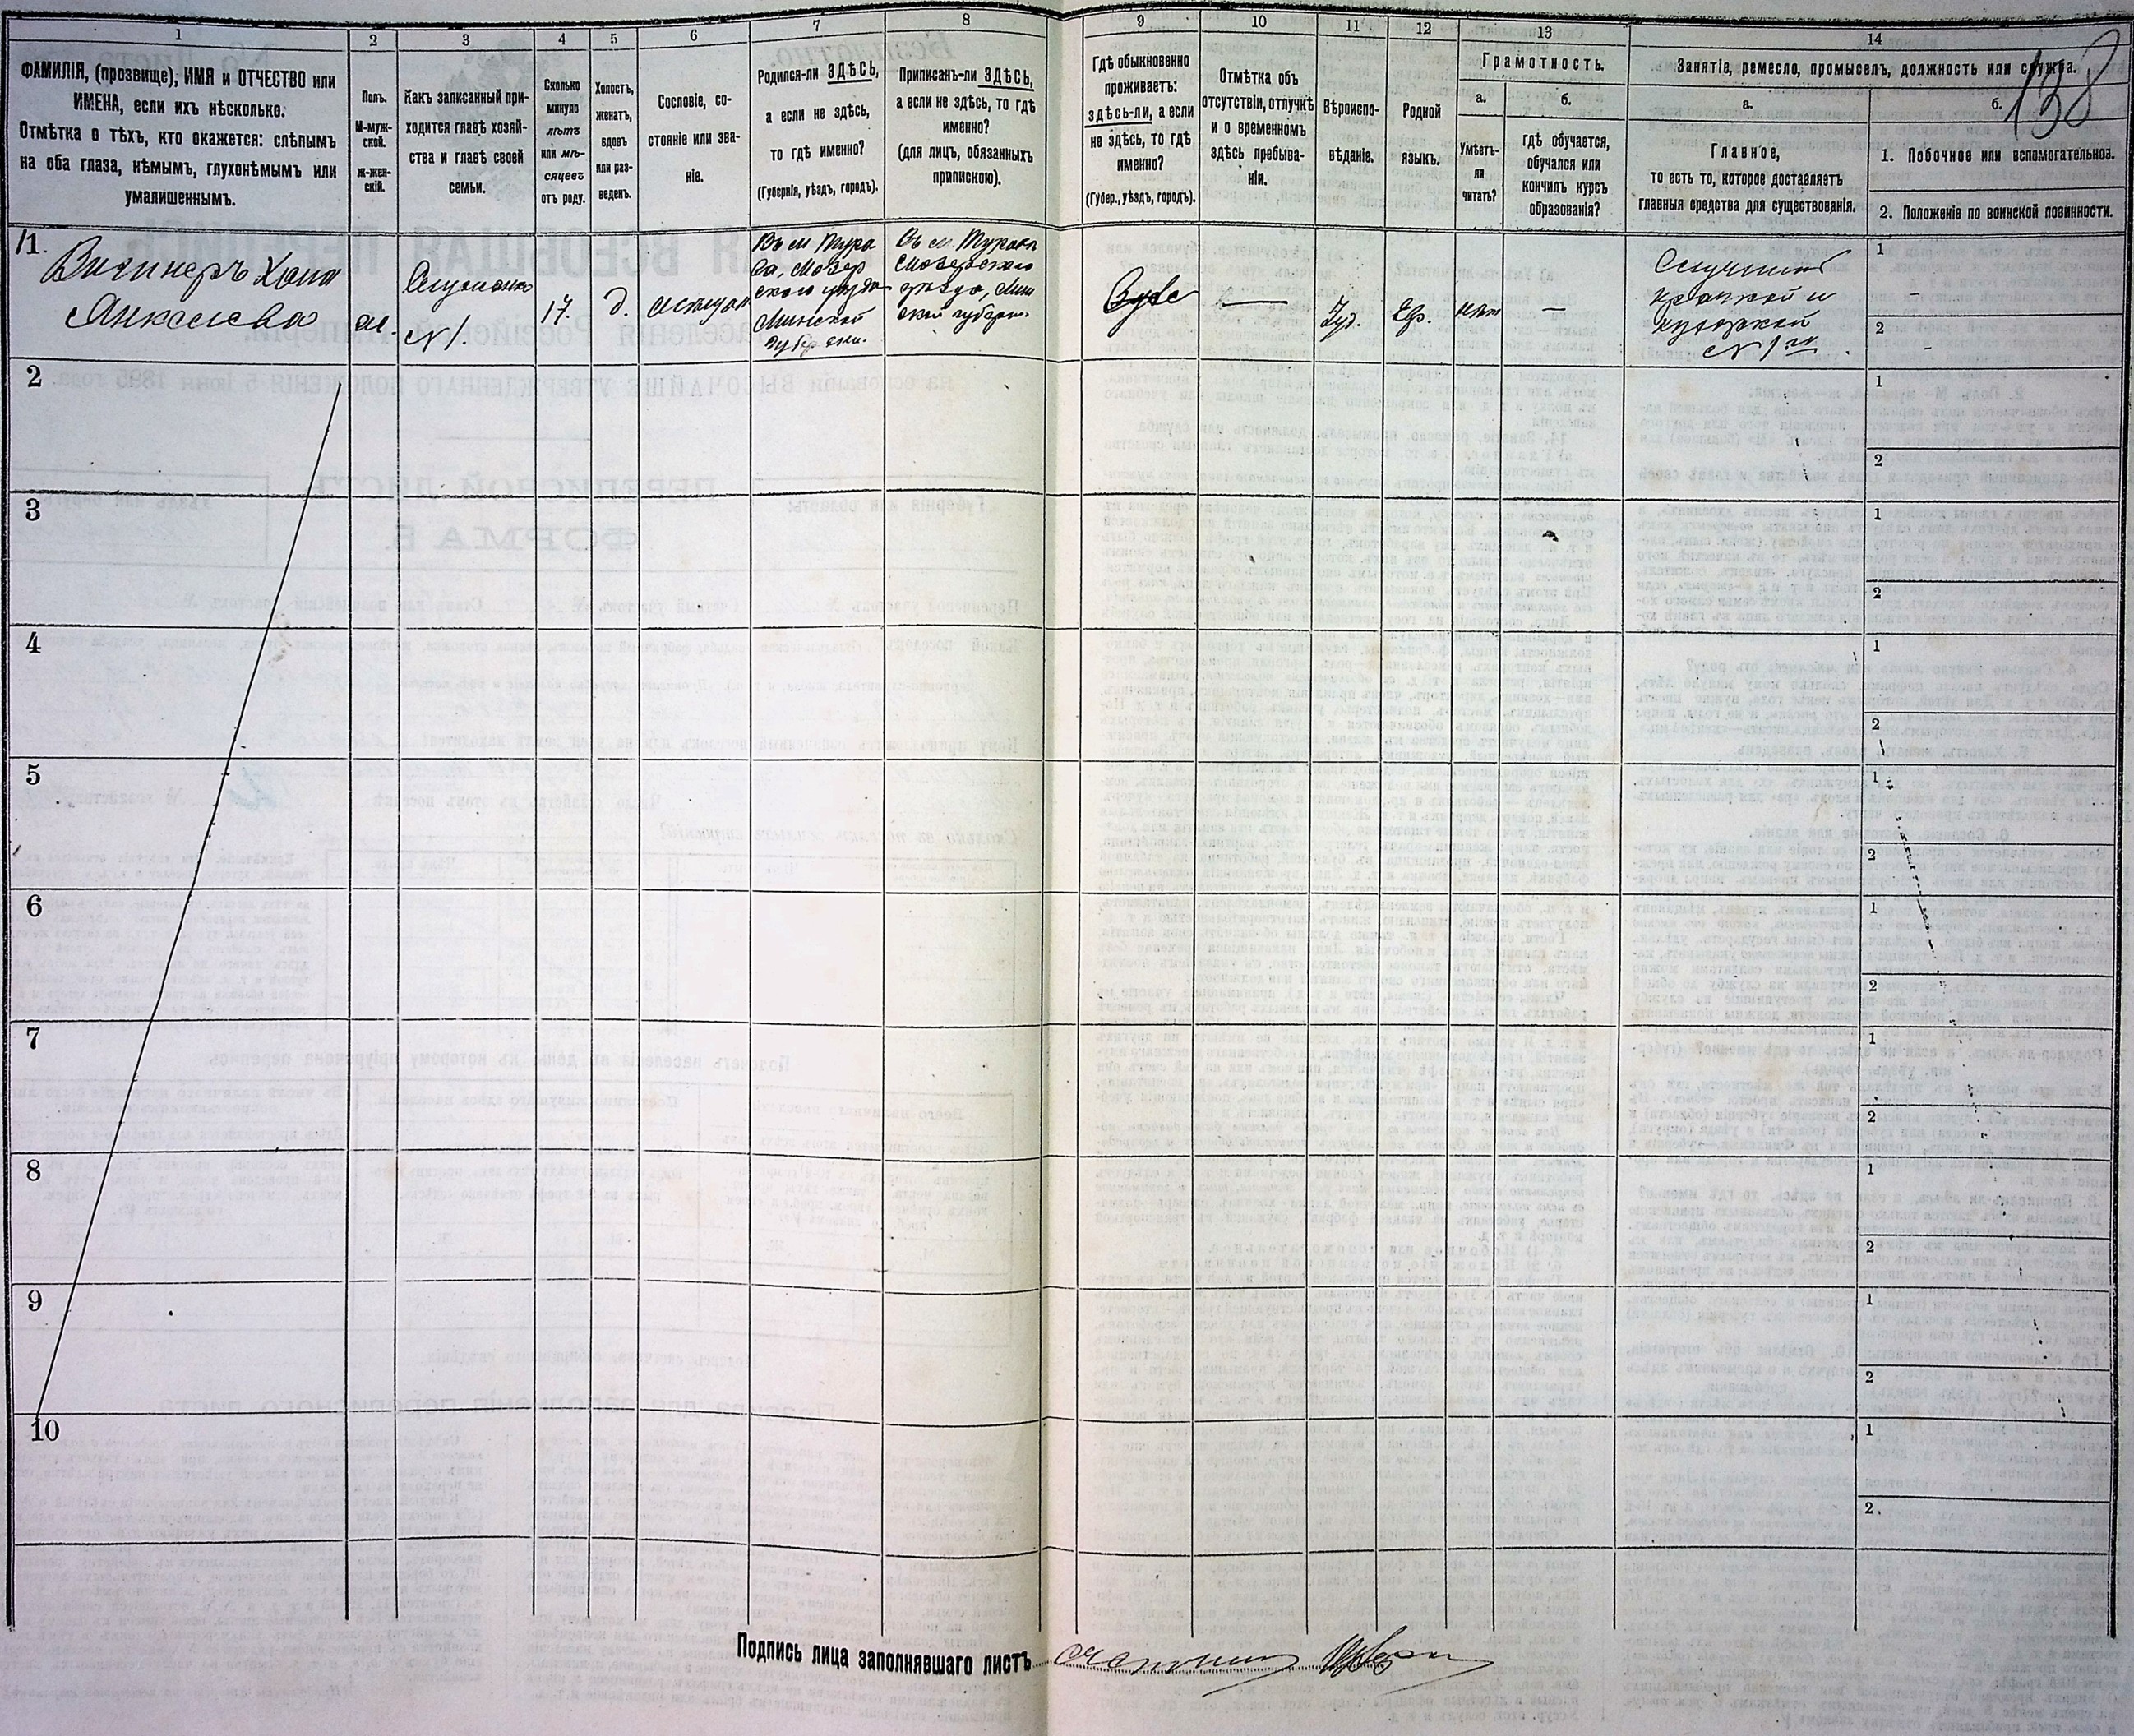 1
2
3
4
5
6
7
8
9
10
11
12
13
14
138
ФАМИЛІЯ, (прозвище), ИМЯ и ОТЧЕСТВО или
ИМЕНА, если ихъ нѣсколько.
Отмѣтка о тѣхъ, кто окажется: слѣпымъ
на оба глаза, нѣмымъ, глухонѣмымъ или
умалишеннымъ.
Полъ.
М-муж-
ской.
ж-жен-
скій.
Какъ записанный при-
ходится главѣ хозяй-
ства и главѣ своей
семьи.
Сколько
минуло
лѣтъ
или мѣ-
сяцевъ
отъ роду.
Холостъ,
женатъ,
вдовъ
или раз-
веденъ.
Сословіе, со-
стояніе или зва-
ніе.
Родился-ли ЗДѢСЬ,
а если не здѣсь,
то гдѣ именно?
(Губернія, уѣздъ, городъ).
Приписанъ-ли ЗДѢСЬ,
а если не здѣсь, то гдѣ
именно?
(для лицъ, обязанныхъ
припискою).
Гдѣ обыкновенно
проживаетъ:
здѣсь-ли, а если
не здѣсь, то гдѣ
именно?
(Губер., уѣздъ, городъ).
Отмѣтка объ
отсутствіи, отлучкѣ
и о временномъ
здѣсь пребыва-
ніи.
Вѣроиспо-
вѣданіе.
Родной
языкъ.
Грамотность.
а.
Умѣетъ-
ли
читать?
б.
гдѣ обучается,
обучался или
кончилъ курсъ
образованія?
Занятіе, ремесло, промыселъ, должность или служба.
а.
Главное,
то есть то, которое доставляетъ
главныя средства для существованія.
б.
1. Побочное или вспомогательное.
2. Положеніе по воинской повинности.
1.
Хана
Янкелева
№ 1.
17.
д.
Въ м. Туро
ва, Мозыр
скаго уѣзда
Минской
губерніи.
Въ м. Турова
Мозырскаго
уѣзда, Мин
ской губерн.
—
Іуд.
Евр.
нѣт
—
и
№ 1го.
1
-
2
-
2
1
2
3
1
2
4
1
2
5
1
2
6
1
2
7
1
2
8
1
2
9
1
2
10
1
2.
Подпись лица заполнявшаго листъ